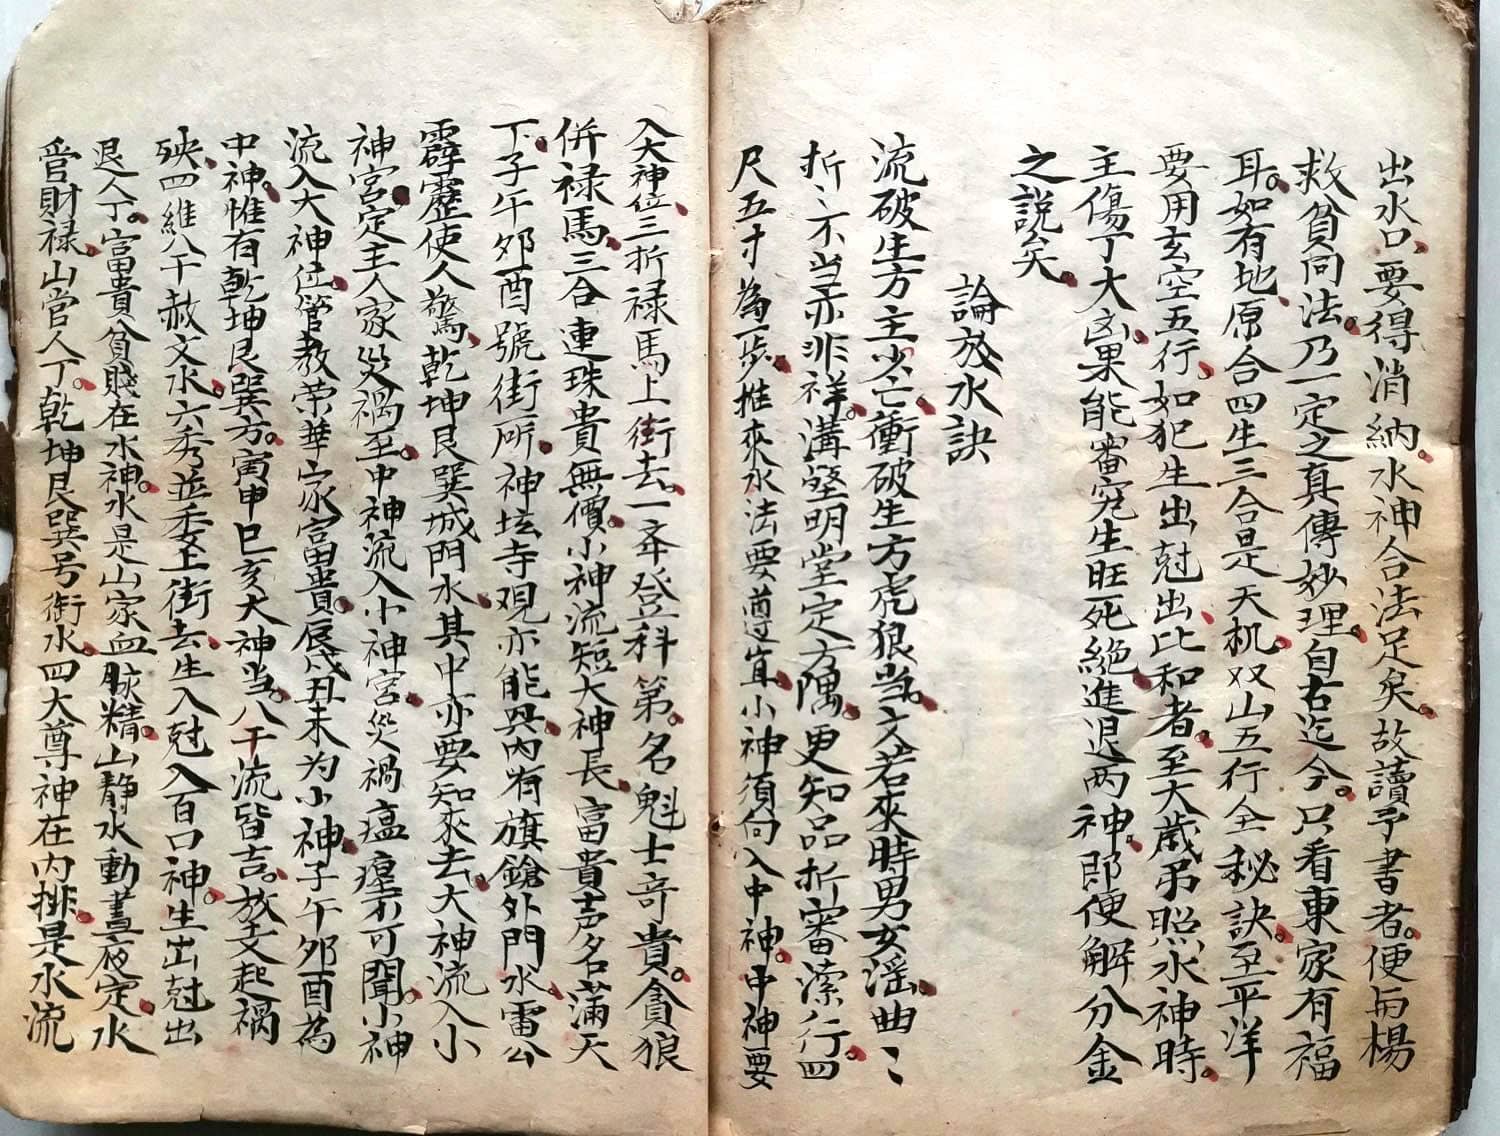 出水口要得消納水神合法足矣故讀予書者便与楊
救貧同法乃一定之真傳妙理自古迄今只看東家有福
耳如有地原合四生三合是天机双山五行全秘訣至平洋
要用玄空五行如犯生出尅出比和者至大歲吊照水神時
主傷丁大凶果能審究生旺死絶進退两神即便解分金
之說矣
論放水訣
流破生方主少亡衝破生方虎狼当文若來時男女淫曲〻
折〻不当亦非祥溝壑明堂定方隅更知品折審潆行四
尺五寸為一步推來水法要遵宜小神須向入中神中神要
入大神位三折禄馬上街去一斉登科第名魁士奇貴貪狼
併禄馬三合連珠貴無價小神流短大神長富貴声名滿天
下子午夘酉號街所神坛寺观亦能具内有旗鎗外門水雷公
霹靂使人驚乾坤艮巽城門水其中亦要知來去大神流入小
神宮定主人家災禍至中神流入小神宮災禍瘟瘟不可聞小神
流入大神位管教荣華家富貴辰戌丑未为小神子午夘酉為
中神惟有乾坤艮巽方寅申巳亥大神当八干流皆吉放文起禍
殃四維八干赦文水六秀並委上街去生入尅入百口神生出尅出
退人丁富貴貧賤在水神水是山家血脉精山静水動晝夜定水
管財禄山管人丁乾坤艮巽号街水四大尊神在内排是水流